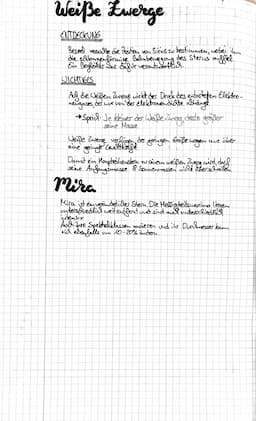 Weiße Zwerge
ENTDECKUNG
Bessel versuchte die Position von Sirius zu bestimmen, wobei ihm
die schlangenförmige Bahnbewegung des Sterns auffiel.
Ein Begleiter das dafür verantwortlich.
WICHTIGES
Auf die Weißen Zwerge wirkt der Druck des entarteten Elektro-
nengases, der nur von der Elektronendichte abhängt
→ Sprich: Je kleiner der Weiße Zwerg, desto größer
seine Masse
Weiße Zwerge verfügen der geringen Größe wegen nur über
eine geringe Leuchtkraft
Damit ein Hauptreihenstern zu einem weißen Zwerg wird, darf
seine Anfangsmasse 8 Sonnenmassen nicht überschreiten
Mira
Mira ist ein veränderlicher Stern. Die Helligkeitsmaxima liegen
unterschiedlich weit entfernt und sind auch unterschiedlich
intensiv
Auch ihre Spektralklassen variieren und ihr Durchmesser kann
sich ebenfalls um 10-20% ändern